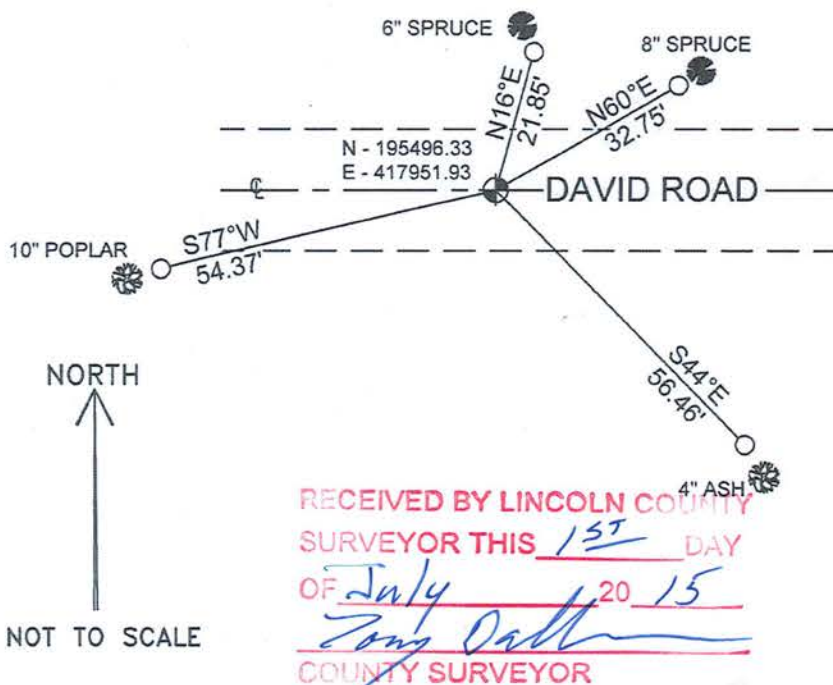 6" SPRUCE
8" SPRUCE
N16°E
21.85'
N60°E
32.75'
N - 195496.33
E - 417951.93
℄
DAVID ROAD
10" POPLAR
S77°W
54.37'
S44°E
56.46'
NORTH
4" ASH
RECEIVED BY LINCOLN COUNTY
SURVEYOR THIS 1ST DAY
OF July 20 15
Tony Dall
COUNTY SURVEYOR
NOT TO SCALE